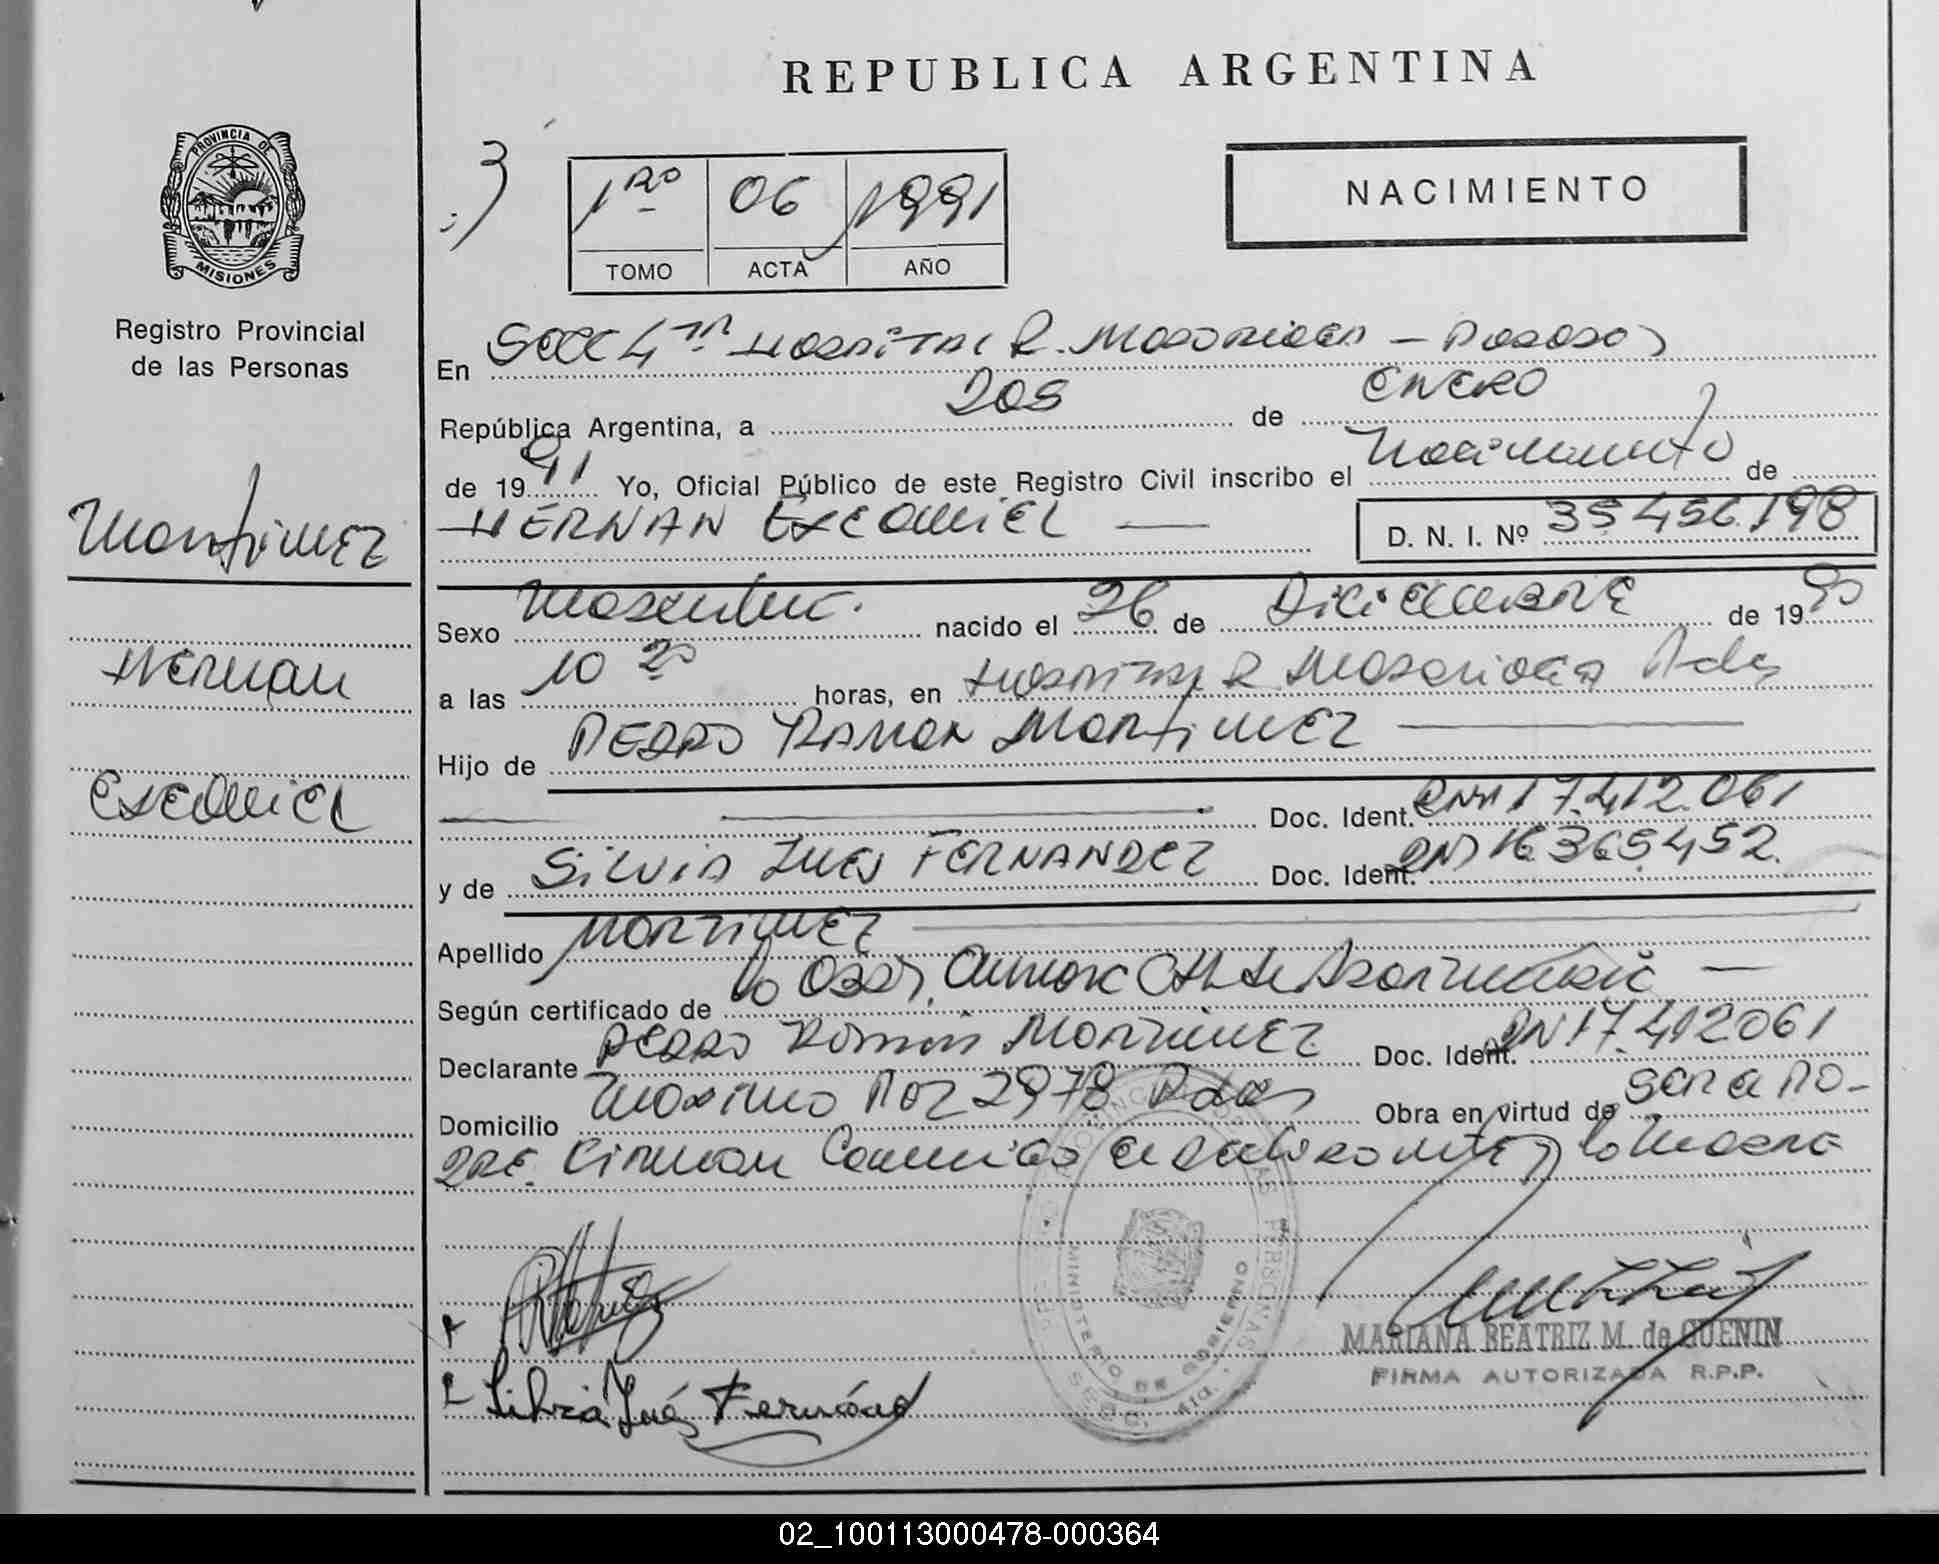 REPUBLICA ARGENTINA
PROVINCIA DE
MISIONES
Registro Provincial
de las Personas
1ro 06 1991
TOMO ACTA AÑO
NACIMIENTO
En Secc 4ta Hospital R. Madariaga - Posadas
República Argentina, a dos de ENERO
de 1991 Yo, Oficial Público de este Registro Civil inscribo el Nacimiento de
HERNAN EXEQUIEL D. N. I. Nº 35.456.198
Martinez
Hernan
Exequiel
Sexo Masculino. nacido el 26 de DICIEMBRE de 1990
a las 10 20 horas, en Hospital R. Madariaga Pdas
Hijo de PEDRO RAMON Martinez
Doc. Ident. DNI 17.412.061
y de Silvia Ines FERNANDEZ Doc. Ident. DNI 16.365.452.
Apellido MARTINEZ
Según certificado de la Obst.
Declarante PEDRO Ramon MARTINEZ Doc. Ident. DNI 17.412061
Domicilio Maximo Paz 2978 Pdas Obra en virtud de ser el pa-
dre. Firman conmigo el declarante y la madre
Silvia Inés Fernández
MINISTERIO DE GOBIERNO
MARIANA BEATRIZ M. de GUENIN
FIRMA AUTORIZADA R.P.P.
02_100113000478-000364